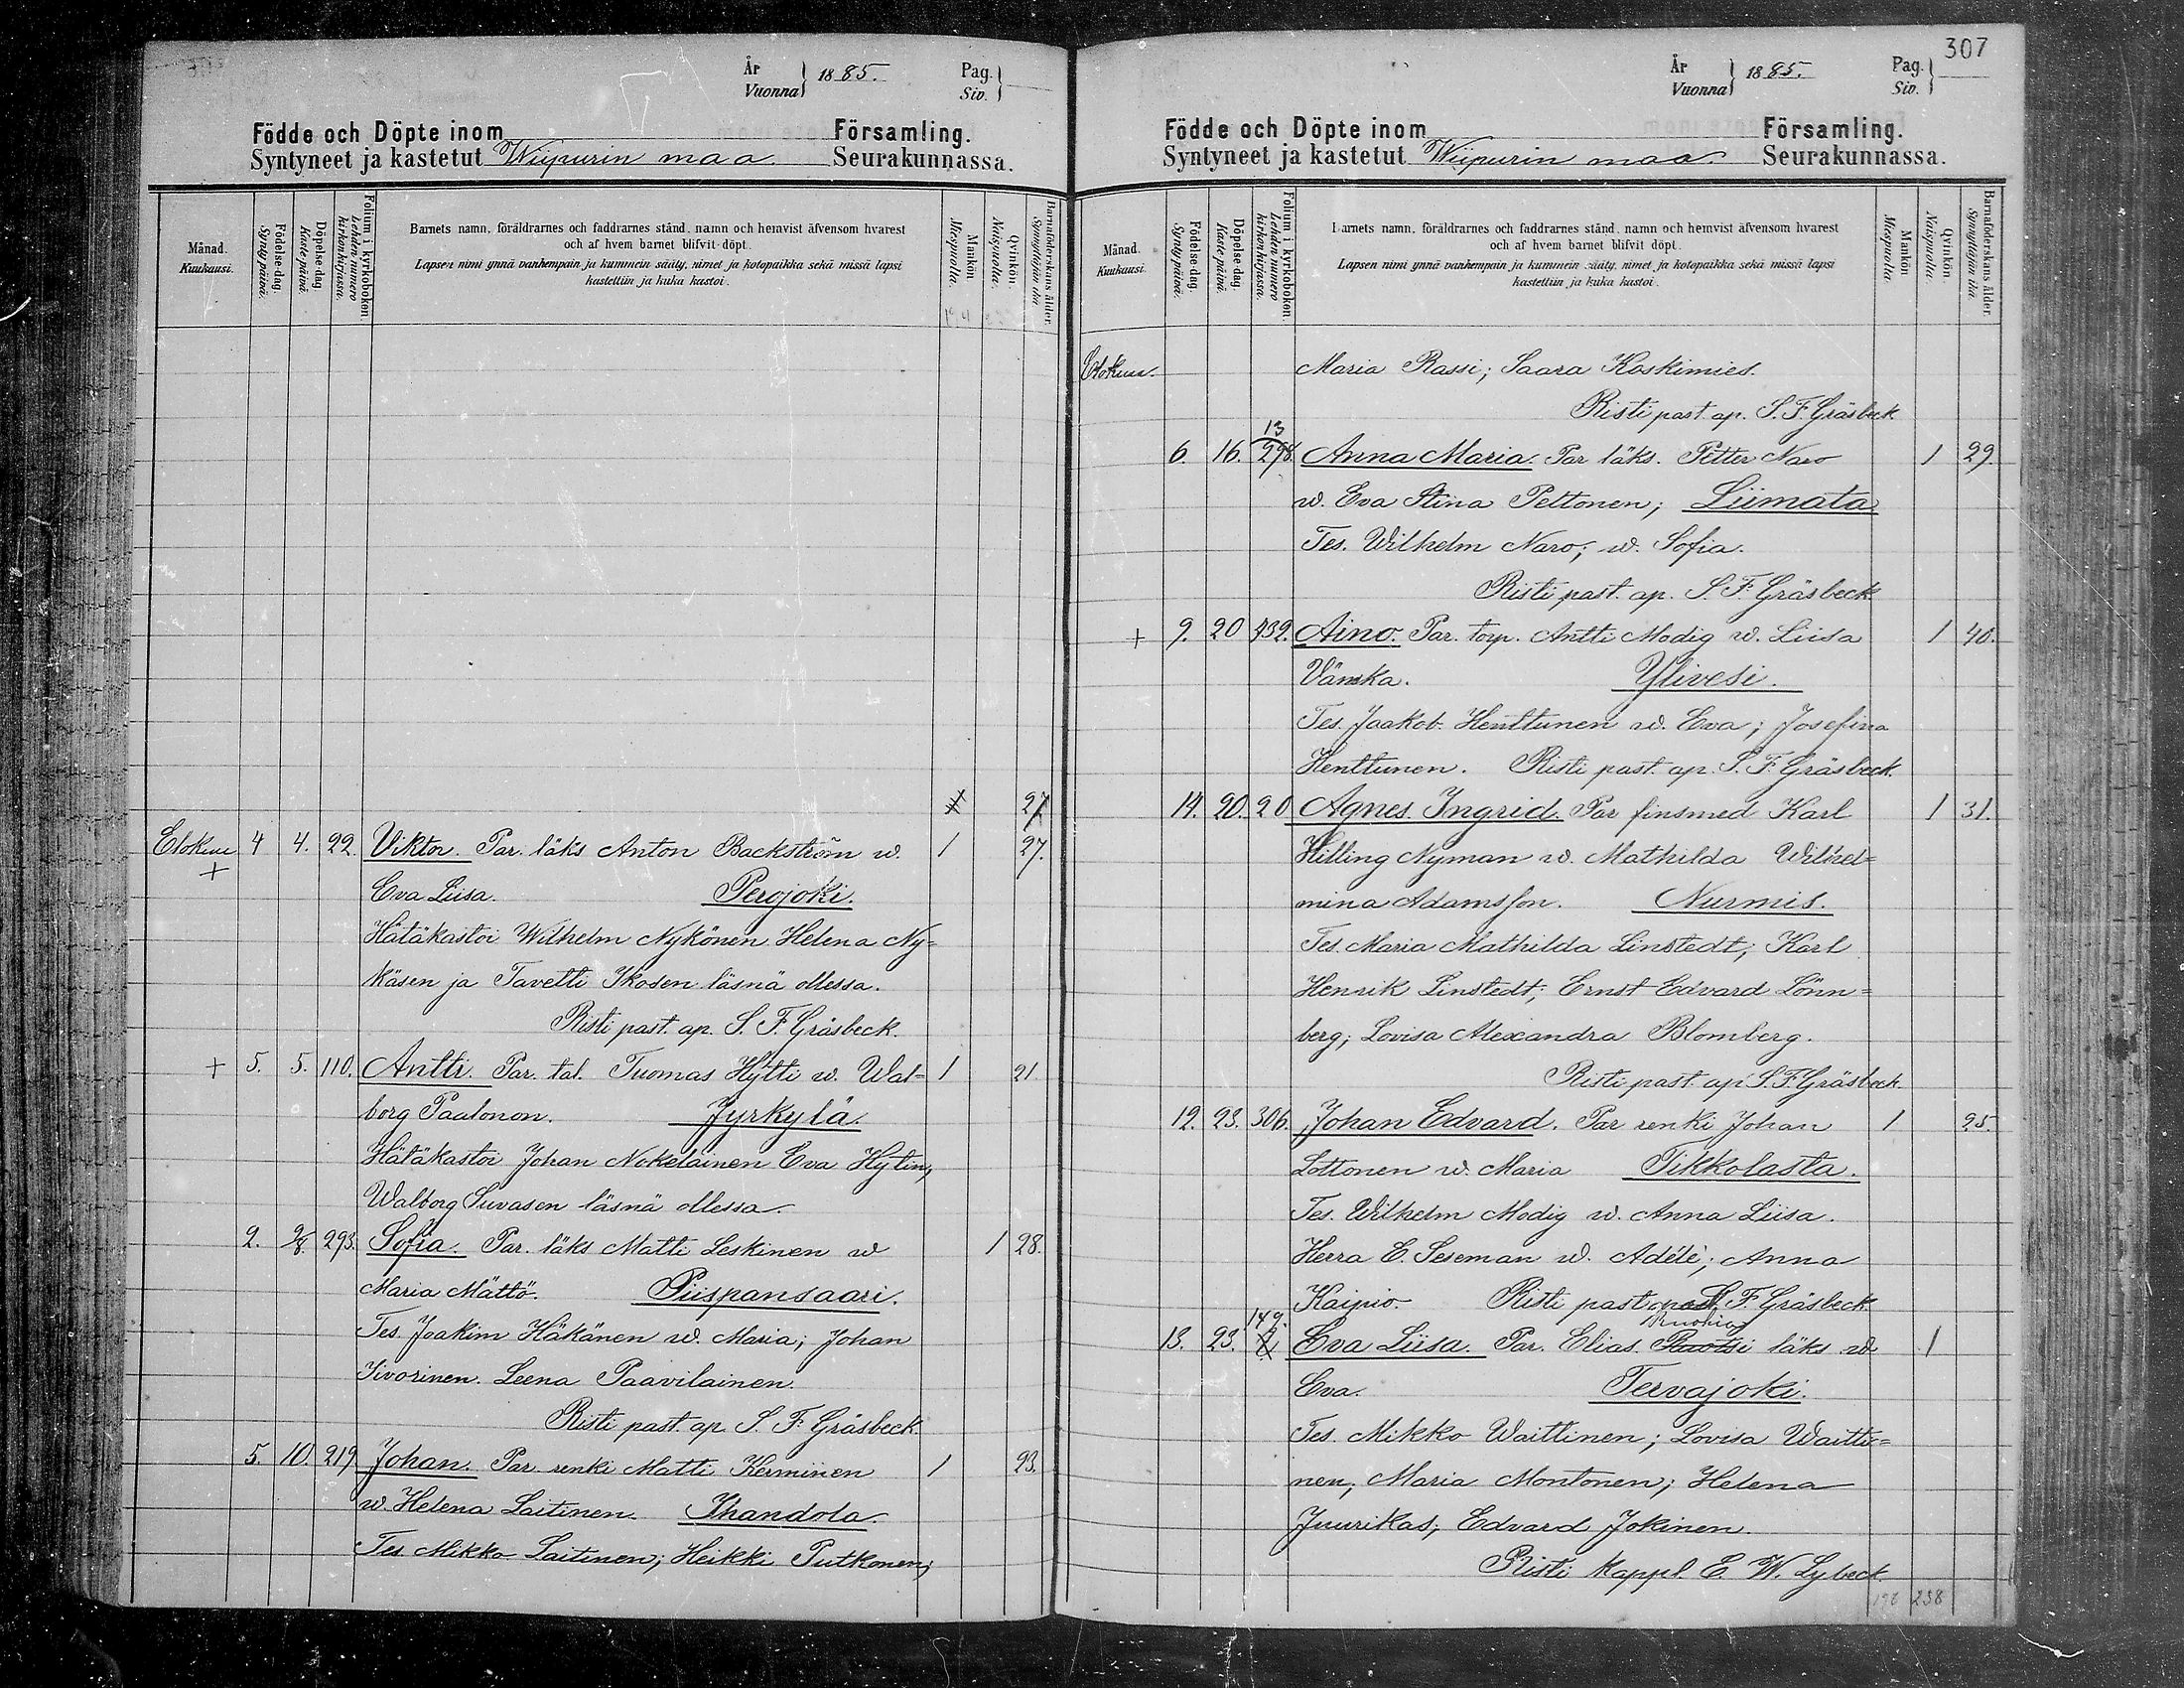 År
Vuonna 1885.
Pag.
Siv.
Födde och Döpte inom Församling.
Syntyneet ja kastetut Wiipurin maa Seurakunnassa.
Månad.
Kuukausi.
Födelse-dag.
Synty päivä.
Döpelse-dag.
Kaste-päivä.
Folium i kyrkoboken.
Lehden numero kirkonkirjassa.
Barnets namn, föräldrarnes och faddrarnes stånd, namn och hemvist äfvensom hvarest
och af hvem barnet blifvit döpt.
Lapsen nimi ynnä vanhempain ja kummein sääty, nimet ja kotopaikka sekä missä lapsi
kastettiin ja kuka kastoi.
Mankön.
Miespuolta.
Qvinkön.
Naispuolta.
Barnaföderskans ålder.
Synnyttäjän ikä.
1 27
Elokuu 4 4. 22. Viktor. Par. läks Anton Backström w. 1 27.
+
Eva Liisa. Perojoki.
Hätäkastoi Wilhelm Nykönen Helena Ny=
käsen ja Tavetti Ikosen läsnä ollessa.
Risti past. ap. S. F. Gräsbeck.
+ 5. 5. 110. Antti. Par. tal. Tuomas Hytti w. Wal= 1 21.
borg Paalonon. Jyrkylä.
Hätäkastoi Johan Nokelainen Eva Hytin,
Walborg Suvasen läsnä ollessa.
2. 9/8. 293. Sofia. Par. läks Matti Leskinen w 1 28.
Maria Mättö. Piispansaari.
Tes. Joakim Häkänen w. Maria; Johan
Iivorinen. Leena Paavilainen.
Risti past. ap. S. F. Gräsbeck.
5. 10. 219 Johan. Par. renki Matti Kerminen 1 23.
w. Helena Laitinen. Ihandola.
Tes Mikko Laitinen; Heikki Putkonen;
307
År
Vuonna 1885.
Pag.
Siv.
Födde och Döpte inom Församling.
Syntyneet ja kastetut Wiipurin maa Seurakunnassa.
Månad.
Kuukausi.
Födelse-dag.
Synty päivä.
Döpelse-dag.
Kaste päivä.
Folium i kyrkoboken.
Lehden numero kirkonkirjassa.
Barnets namn, föräldrarnes och faddrarnes stånd, namn och hemvist äfvensom hvarest
och af hvem barnet blifvit döpt.
Lapsen nimi ynnä vanhempain ja kummein sääty, nimet ja kotopaikka sekä missä lapsi
kastettiin ja kuka kastoi.
Mankön.
Miespuolta.
Qvinkön.
Naispuolta.
Barnaföderskans ålder.
Synnyttäjän ikä.
Elokuu. Maria Rassi; Saara Koskimies.
Risti past. ap. S. F. Gräsbeck
13
6. 16. 298. Anna Maria. Par läks. Petter Naro 1 29.
w. Eva Stina Peltonen; Liimata
Tes. Wilhelm Naro; w. Sofia.
Risti past. ap. S. F. Gräsbeck.
+ 9. 20 932. Aino. Par. torp. Antti Modig w. Liisa 1 40.
Vänska. Ylivesi.
Tes. Jaakob Henttunen w. Eva; Josefina
Henttunen. Risti past. ap. S. F. Gräsbeck.
14. 20. 20 Agnes Ingrid. Par finsmed Karl 1 31.
Hilling Nyman w. Mathilda Wilhel=
mina Adamsson. Nurmis.
Tes. Maria Mathilda Linstedt; Karl
Henrik Linstedt; Ernst Edvard Lönn=
berg; Lovisa Alexandra Blomberg.
Risti past. ap. S. F. Gräsbeck
12. 23. 306. Johan Edvard. Par renki Johan 1 25.
Lottonen w. Maria Tikkolasta.
Tes. Wilhelm Modig w. Anna Liisa.
Herra E. Seseman w. Adéle; Anna
Kaipio. Risti past S. F. Gräsbeck.
149.
13. 23. Eva Liisa. Par. Elias läks w 1
Eva. Tervajoki.
Tes. Mikko Waittinen; Lovisa Waitti=
nen; Maria Montonen; Helena
Juurikas; Edvard Jokinen.
Risti kappl. E. W. Lybeck.
238